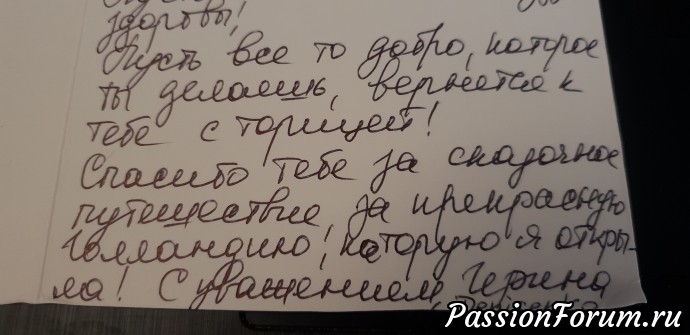 здоровы!
Пусть все то добро, которое
ты делаешь, вернется к
тебе с торицей!
Спасибо тебе за сказочное
путешествие, за прекрасную
Голландию, которую я откры-
ла! С уважением,
PassionForum.ru